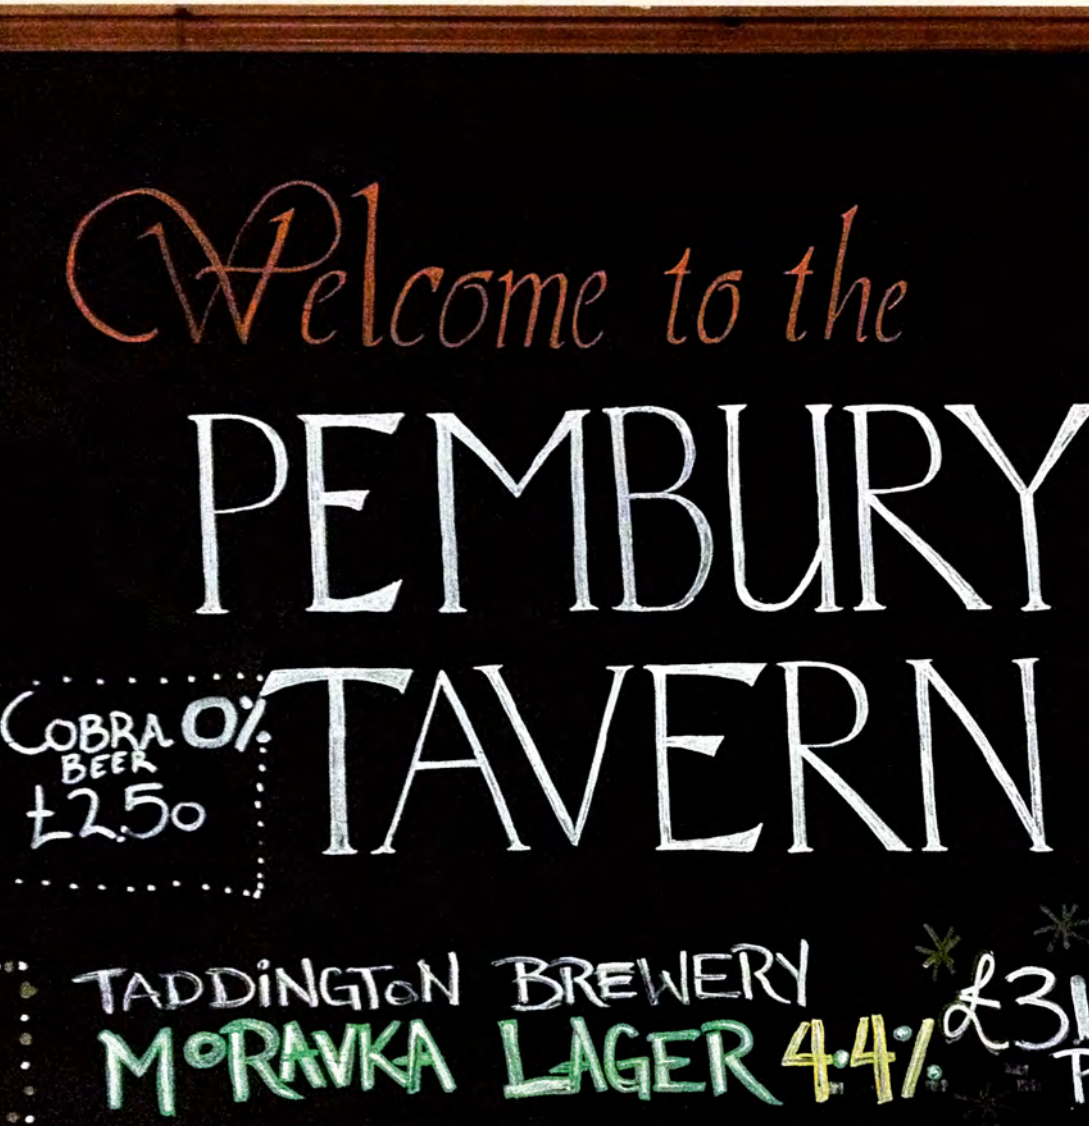 Welcome to the
PEMBURY
TAVERN
COBRA 0%
BEER
£2.50
TADDINGTON BREWERY
MORAVKA LAGER 4.4%